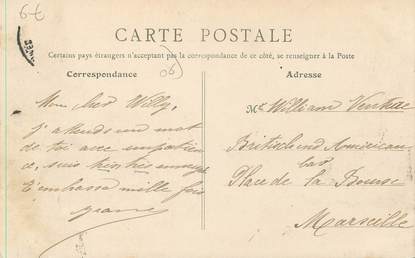 6€
CARTE POSTALE
Certains pays étrangers n'acceptant pas la correspondance de ce côté, se renseigner à la Poste
(06)
Correspondance
Mon cher Willy,
j'attends un mot
de toi avec impatien
ce, suis très très
T'embrasse mille fois
Jeanne
Adresse
Mr. William
British and American
bar
Place de la Bourse
Marseille